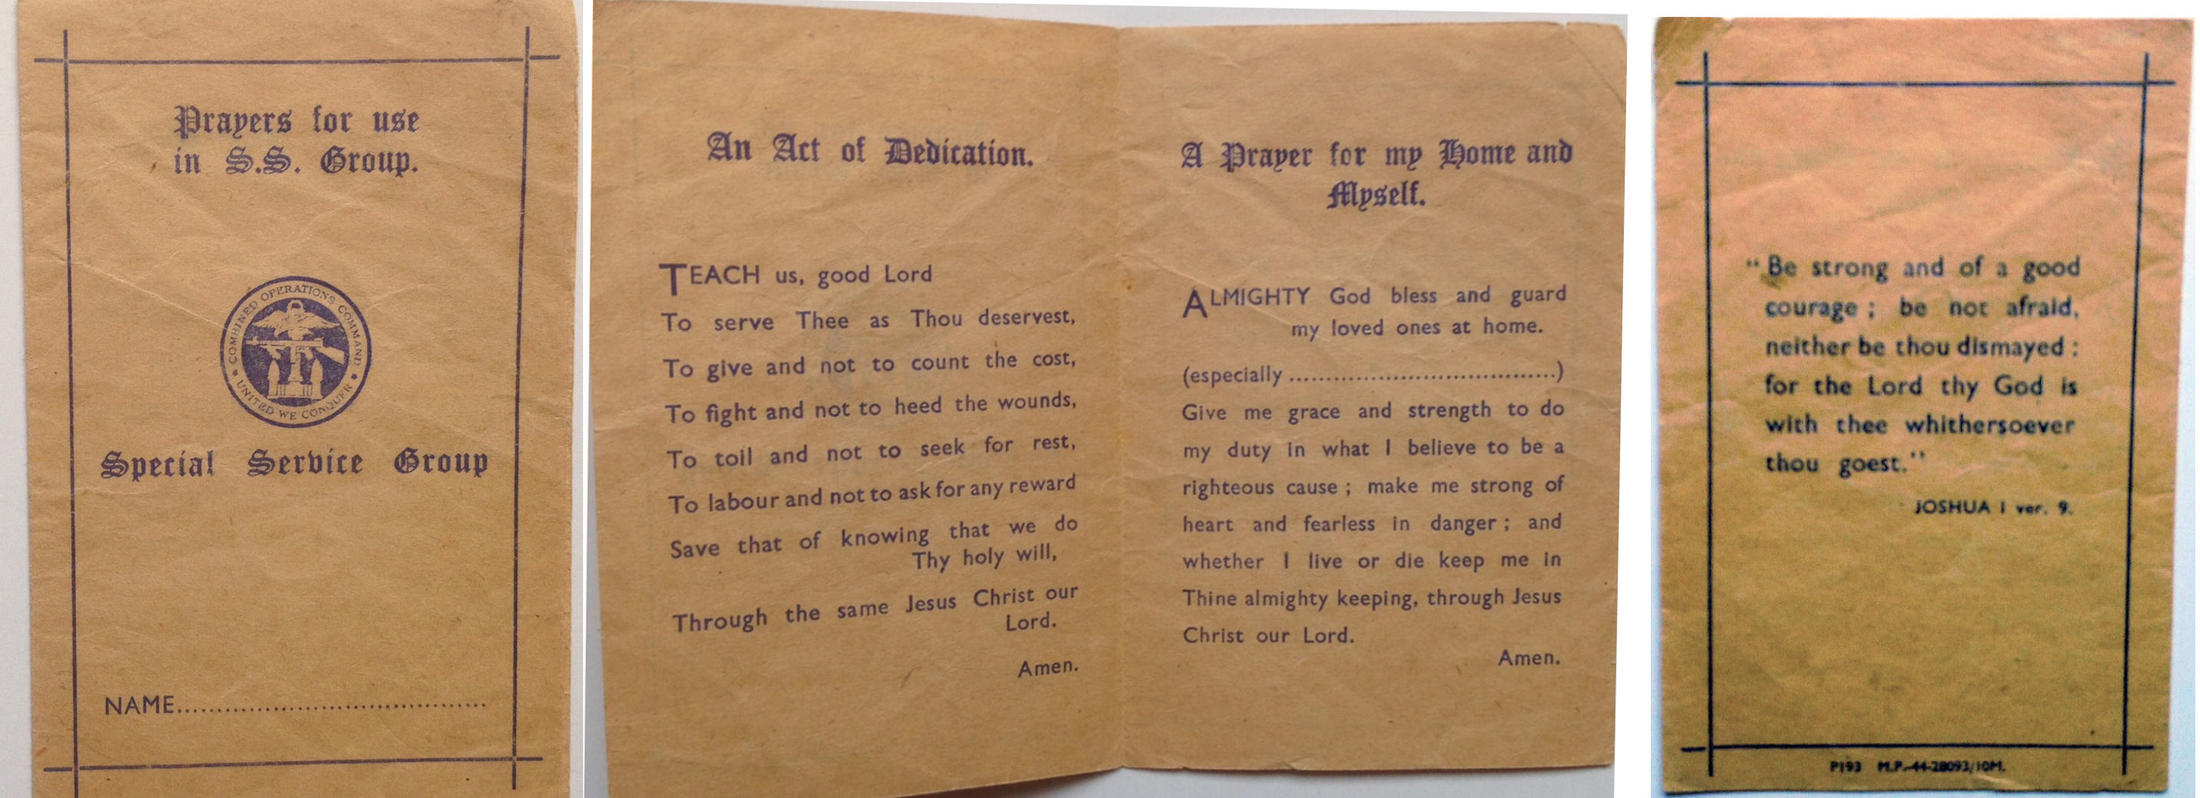 Prayers for use
in S.S. Group.
COMBINED OPERATIONS COMMAND
UNITED WE CONQUER
Special Service Group
NAME.......................................
An Act of Dedication.
TEACH us, good Lord
To serve Thee as Thou deservest,
To give and not to count the cost,
To fight and not to heed the wounds,
To toil and not to seek for rest,
To labour and not to ask for any reward
Save that of knowing that we do
Thy holy will,
Through the same Jesus Christ our
Lord.
Amen.
A Prayer for my Home and
Myself.
ALMIGHTY God bless and guard
my loved ones at home.
(especially ......................................)
Give me grace and strength to do
my duty in what I believe to be a
righteous cause ; make me strong of
heart and fearless in danger ; and
whether I live or die keep me in
Thine almighty keeping, through Jesus
Christ our Lord.
Amen.
"Be strong and of a good
courage ; be not afraid,
neither be thou dismayed :
for the Lord thy God is
with thee whithersoever
thou goest."
JOSHUA I ver. 9.
P193 M.P.-44-28093/10M.